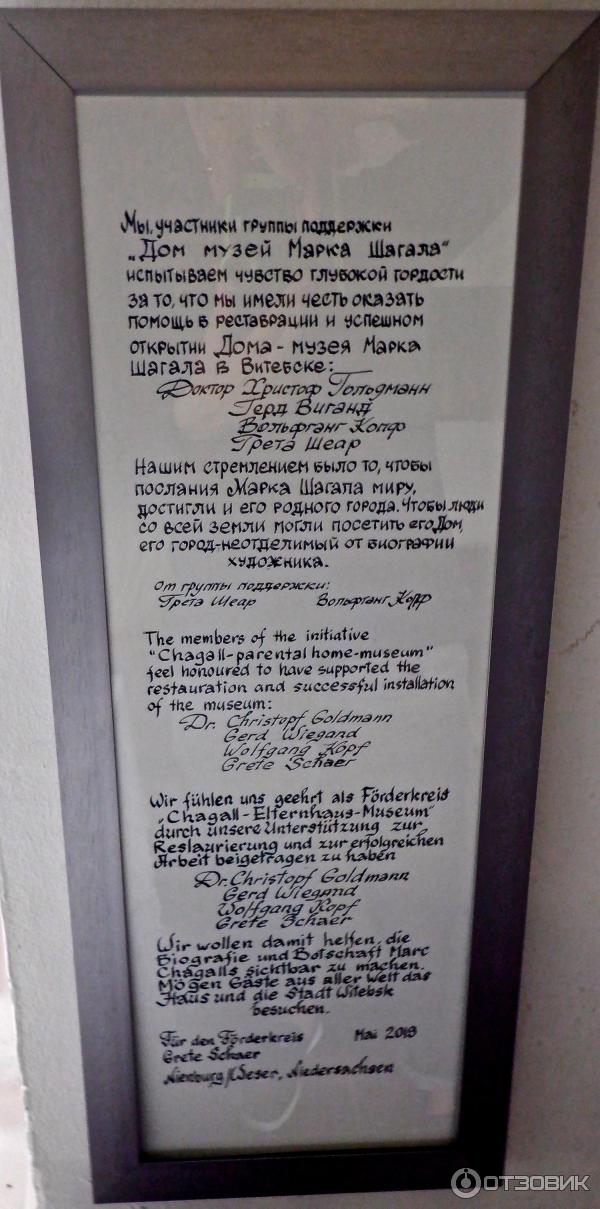 Мы, участники группы поддержки
„Дом музей Марка Шагала“
испытываем чувство глубокой гордости
за то, что мы имели честь оказать
помощь в реставрации и успешном
открытии Дома - музея Марка
Шагала в Витебске:
Доктор Христоф Гольдманн
Герд Виганд
Вольфганг Копф
Грета Шеар
Нашим стремлением было то, чтобы
послания Марка Шагала миру,
достигли и его родного города. Чтобы люди
со всей земли могли посетить его Дом,
его город-неотделимый от биографии
художника.
От группы поддержки:
Грета Шеар Вольфганг Копф
The members of the initiative
"Chagall-parental home-museum"
feel honoured to have supported the
restauration and successful installation
of the museum:
Dr. Christopf Goldmann
Gerd Wiegand
Wolfgang Kopf
Grete Schaer
Wir fühlen uns geehrt als Förderkreis
„Chagall-Elternhaus-Museum"
durch unsere Unterstützung zur
Restaurierung und zur erfolgreichen
Arbeit beigetragen zu haben
Dr. Christopf Goldmann
Gerd Wiegand
Wolfgang Kopf
Grete Schaer
Wir wollen damit helfen, die
Biografie und Botschaft Marc
Chagalls sichtbar zu machen.
Mögen Gäste aus aller Welt das
Haus und die Stadt Witebsk
besuchen.
Für den Förderkreis Mai 2013
Grete Schaer
Nienburg/Weser, Niedersachsen
ОТЗОВИК